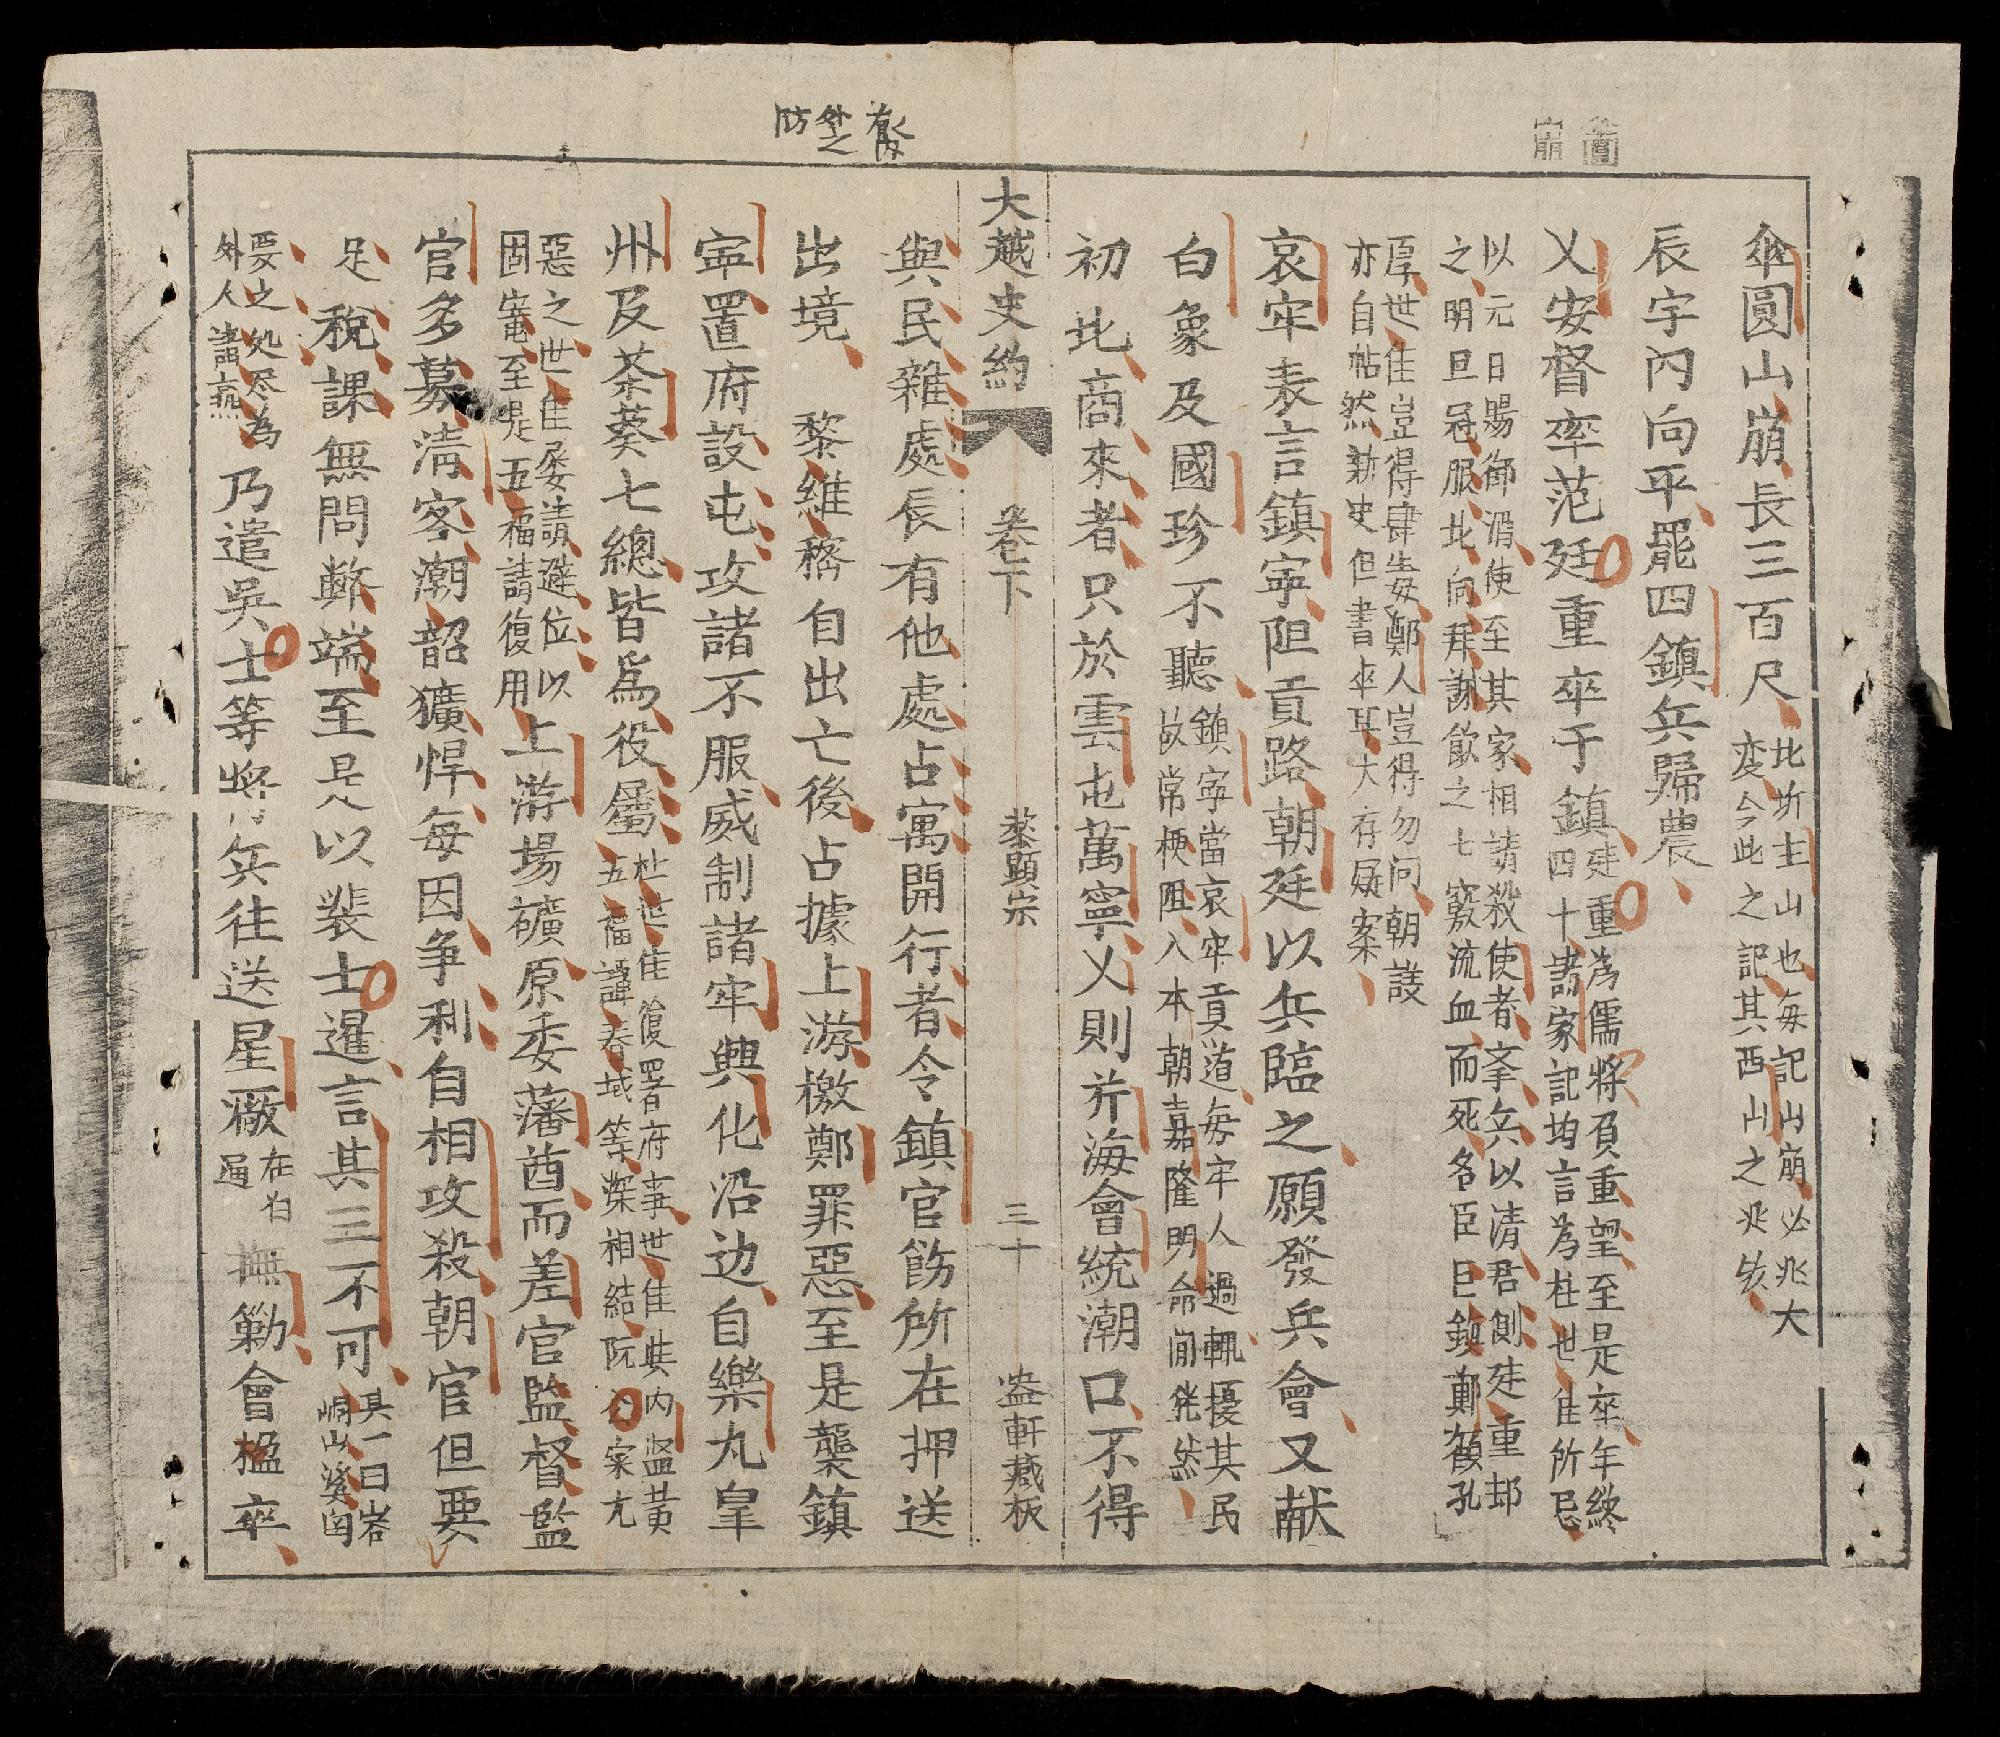 傘圓山崩長三百尺
比圻主山也每記山崩必兆大
变今此之記其西山之兆欤
辰宇內向平罷四鎮兵歸農
乂安督率范廷重卒于鎮
廷重為儒將負重望至是卒年終
四十諸家記均言為杜世佳所忌
以元日賜御酒使至其家相請殺使者李兵以清君側廷重却
之明旦冠服北向拜謝飲之七竅流血而死名臣巨鎮鄭顧孔
厚世佳豈得肆毒鄭人豈得勿问朝議
亦自帖然新史但書卒耳大存疑案
哀牢表言鎮寧阻貢路朝廷以兵臨之願發兵會又献
白象及國珍不聽
鎮寧當哀牢貢道每牢人過輒擾其民
故常梗阻入本朝嘉隆明命間犹然
初北商來者只於雲屯萬寧乂則芹海會統潮口不得
大越史約 卷下 黎顯宗 三十 盎軒藏板
與民雜處辰有他處占寓開行者令鎮官飭所在押送
出境 黎維𥡝自出亡後占據上游檄鄭罪惡至是襲鎮
寧置府設屯攻諸不服威制諸牢興化沿边自樂丸皇
州及茶葵七總皆爲役屬
杜世佳復署府事世佳與内监黄
五福譚春域等深相結阮公寀亢
惡之世佳屡請避位以
固寵至是五福請復用
上游場礦原委藩酋而差官監督監
官多募清客潮韶獷悍每因争利自相攻殺朝官但要
足稅課無問弊端至是以裴士暹言其三不可
其一曰峇
峒山溪囪
要之处尽为
外人
乃遣吳士等將兵往送星厰
在白
撫勦會楹卒